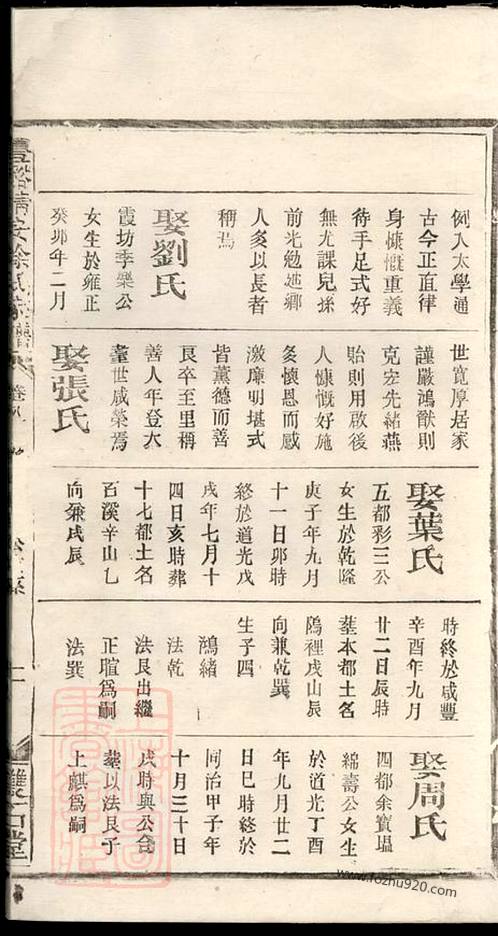 例入太學通
古今正直律
身慷慨重義
待手足式好
無尤課兒孫
前光勉述鄉
人多以長者
稱焉
娶劉氏
霞坊李樂公
女生於雍正
癸卯年二月
世寬厚居家
謹嚴鴻猷則
克宏先緒燕
貽則用啟後
人慷慨好施
多懷恩而感
激廉明堪式
皆薰德而善
良卒至里稱
善人年登大
耋世咸榮焉
娶張氏
娶葉氏
五都彩三公
女生於乾隆
庚子年九月
十一日卯時
終於道光戊
戌年七月十
四日亥時葬
十七都土名
石溪辛山乙
向兼戌辰
時終於咸豐
辛酉年九月
廿二日辰時
塟本都土名
隝裡戌山辰
向兼乾巽
生子四
鴻緒
法乾
法艮出繼
正瑄爲嗣
法巽
娶周氏
四都余寶塭
綿壽公女生
於道光丁酉
年九月廿二
日巳時終於
同治甲子年
十月三十日
戌時與公合
塟以法艮子
上麒爲嗣
徐氏宗譜
卷八
雙石堂
www.fozhu920.com